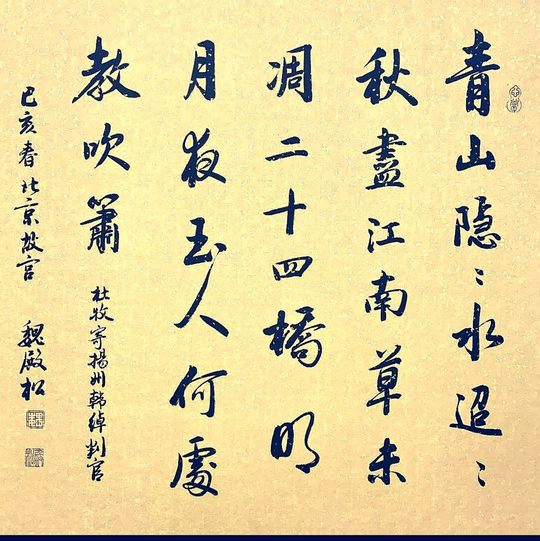 青山隐〻水迢〻
秋盡江南草未
凋二十四橋明
月夜玉人何處
教吹簫
杜牧寄揚州韩绰判官
己亥春北京故宫
魏殿松